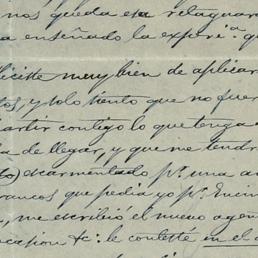 nos queda esa retaguar
a enseñado la experª. q
iciste muy bien de aplicar
os, y solo siento que no fuer
artir contigo lo que tenga
a de llegar, y que me tendr
to) escarmentado pr. una a
rancos que pedia yo pr. Enim
, me escribió el nuevo agen
ocasion &c. le contesté en el